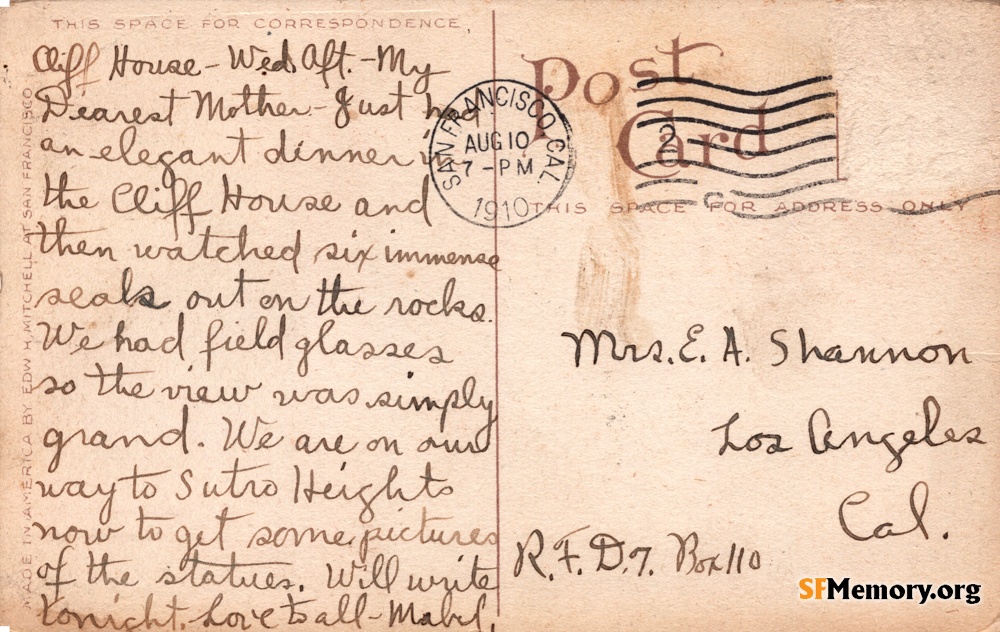 THIS SPACE FOR CORRESPONDENCE.
Cliff House - Wed. Aft. - My
Dearest Mother - Just had
an elegant dinner in
the Cliff House and
then watched six immense
seals out on the rocks.
We had field glasses
so the view was simply
grand. We are on our
way to Sutro Heights
now to get some pictures
of the statues. Will write
tonight. Love to all - Mabel.
MADE IN AMERICA BY EDW. H. MITCHELL AT SAN FRANCISCO
Post
Card
SAN FRANCISCO, CAL.
AUG 10
7 - PM
1910
2
THIS SPACE FOR ADDRESS ONLY
Mrs. E. A. Shannon
Los Angeles
Cal.
R. F. D. 7. Box 110
SFMemory.org